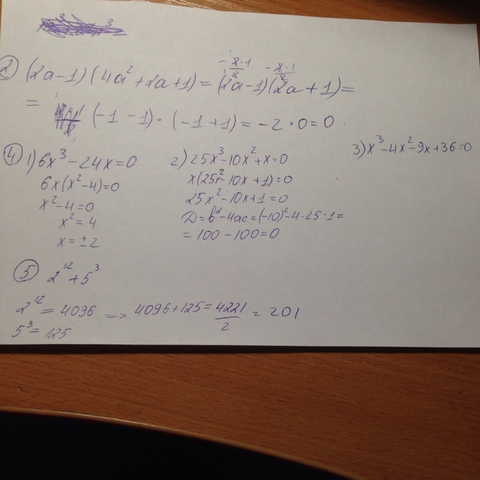 ② (2a-1)(4a²+2a+1)=(2a-1)(2a+1)=
= (-1-1)·(-1+1)=-2·0=0.
④ 1) 6x³-24x=0
6x(x²-4)=0
x²-4=0
x²=4
x=±2
2) 25x³-10x²+x=0
x(25x²-10x+1)=0
25x²-10x+1=0
D=b²-4ac=(-10)²-4·25·1=
=100-100=0
3) x³-4x²-9x+36=0
⑤ 2¹²+5³
2¹²=4096 => 4096+125=4221/2=201
5³=125